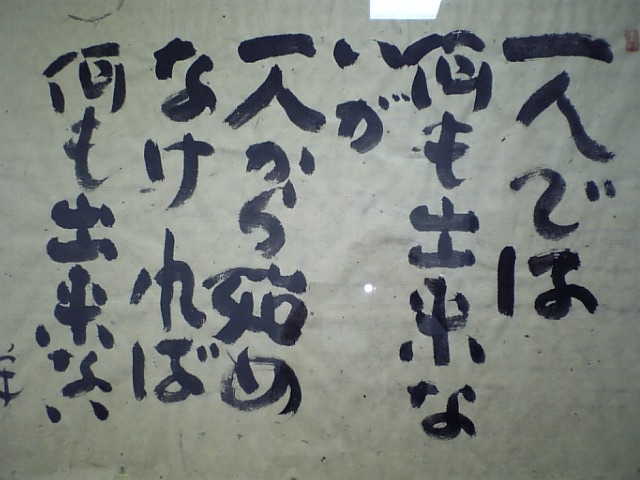 一人では
何も出来な
いが
一人から始め
なければ
何も出来ない